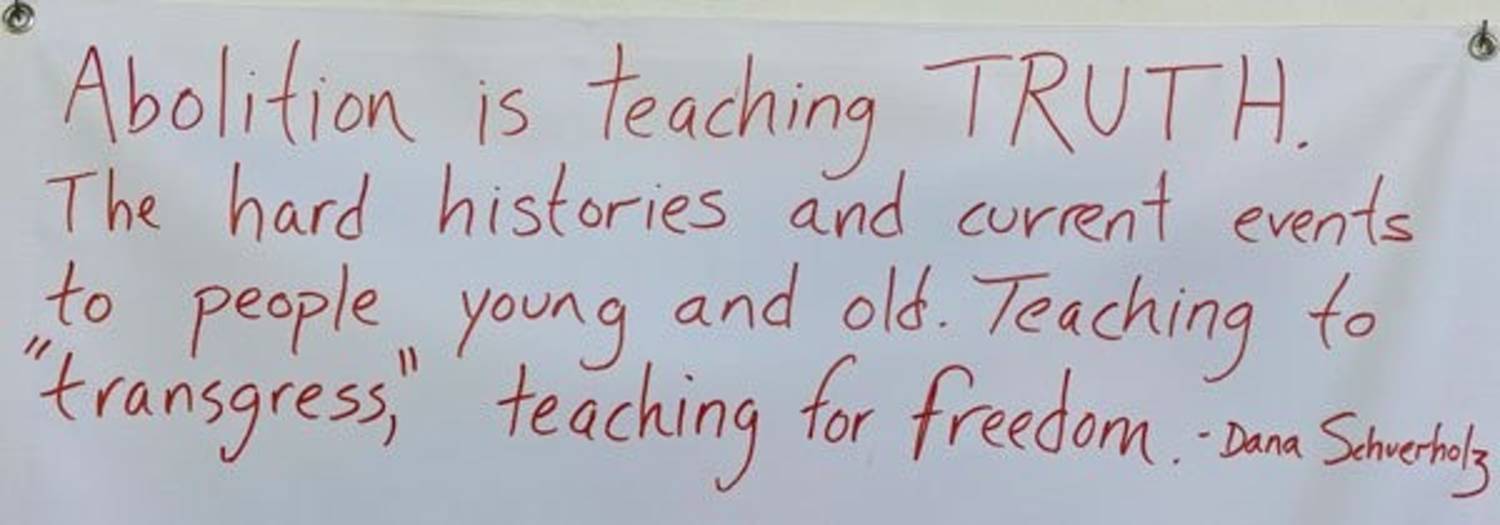 Abolition is teaching TRUTH.
The hard histories and current events
to people young and old. Teaching to
"transgress," teaching for freedom. - Dana Schuerholz